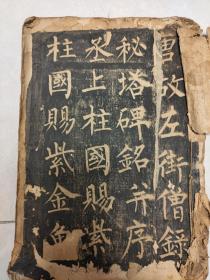 曹故左街僧錄
秘塔碑銘并序
丞上柱國賜紫
柱國賜紫金魚